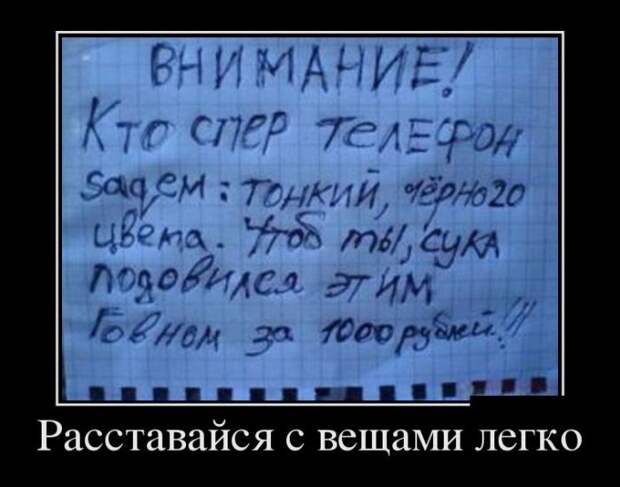 ВНИМАНИЕ!
Кто спер телефон
Sagem: тонкий, чёрного
цвета. Чтоб ты, сука
подовился этим
Говном за 1000 рублей!!!
Расставайся с вещами легко